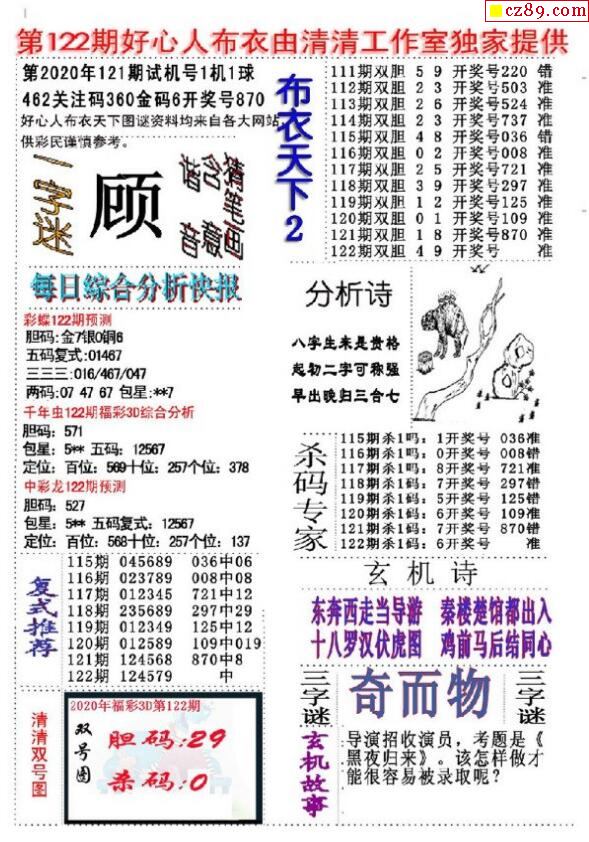 cz89.com
第122期好心人布衣由清清工作室独家提供
第2020年121期试机号1机1球
462关注码360金码6开奖号870
好心人布衣天下图谜资料均来自各大网站
供彩民谨慎参考。
一字迷
顾
猜笔画
含意
谐音
每日綜合分析快报
彩蝶122期预测
胆码:金7银0铜6
五码复式:01467
三三三:016/467/047
两码:07 47 67 包星:**7
千年虫122期福彩3D综合分析
胆码: 571
包星: 5** 五码: 12567
定位: 百位: 569十位: 257个位: 378
中彩龙122期预测
胆码: 527
包星: 5** 五码复式: 12567
定位: 百位: 568十位: 257个位: 137
复式推荐
115期 045689 036中06
116期 023789 008中08
117期 012345 721中12
118期 235689 297中29
119期 012349 125中12
120期 012589 109中019
121期 124568 870中8
122期 124579 中
清清双号图
2020年福彩3D第122期
双号图
胆码:29
杀码:0
布衣天下2
111期双胆 5 9 开奖号220 错
112期双胆 2 3 开奖号503 准
113期双胆 2 6 开奖号524 准
114期双胆 2 3 开奖号737 准
115期双胆 4 8 开奖号036 错
116期双胆 0 2 开奖号008 准
117期双胆 2 5 开奖号721 准
118期双胆 3 9 开奖号297 准
119期双胆 1 2 开奖号125 准
120期双胆 0 1 开奖号109 准
121期双胆 1 8 开奖号870 准
122期双胆 4 9 开奖号 准
分析诗
八字生来是贵格
起初二字可称强
早出晚归三合七
杀码专家
115期杀1吗: 1开奖号 036准
116期杀1吗: 0开奖号 008错
117期杀1吗: 8开奖号 721准
118期杀1码: 7开奖号 297错
119期杀1码: 5开奖号 125错
120期杀1码: 6开奖号 109准
121期杀1码: 7开奖号 870错
122期杀1码: 6开奖号 准
玄机诗
东奔西走当导游 秦楼楚馆都出入
十八罗汉伏虎图 鸡前马后结同心
三字谜
奇而物
三字谜
玄机故事
导演招收演员，考题是《
黑夜归来》。该怎样做才
能很容易被录取呢？